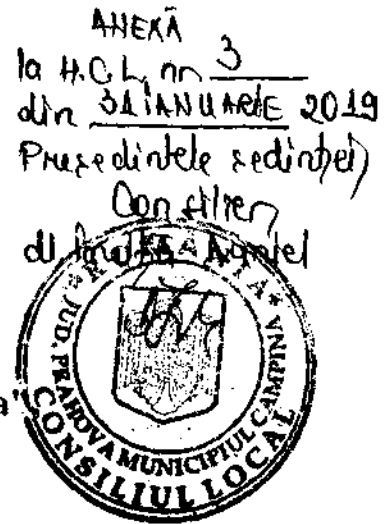 ANEXĂ
la H.C.L. nr. 3
din 31 IANUARIE 2019
Președintele ședinței,
Consilier,
dl
a"
* ROMÂNIA *
JUD. PRAHOVA MUNICIPIUL CAMPINA
CONSILIUL LOCAL